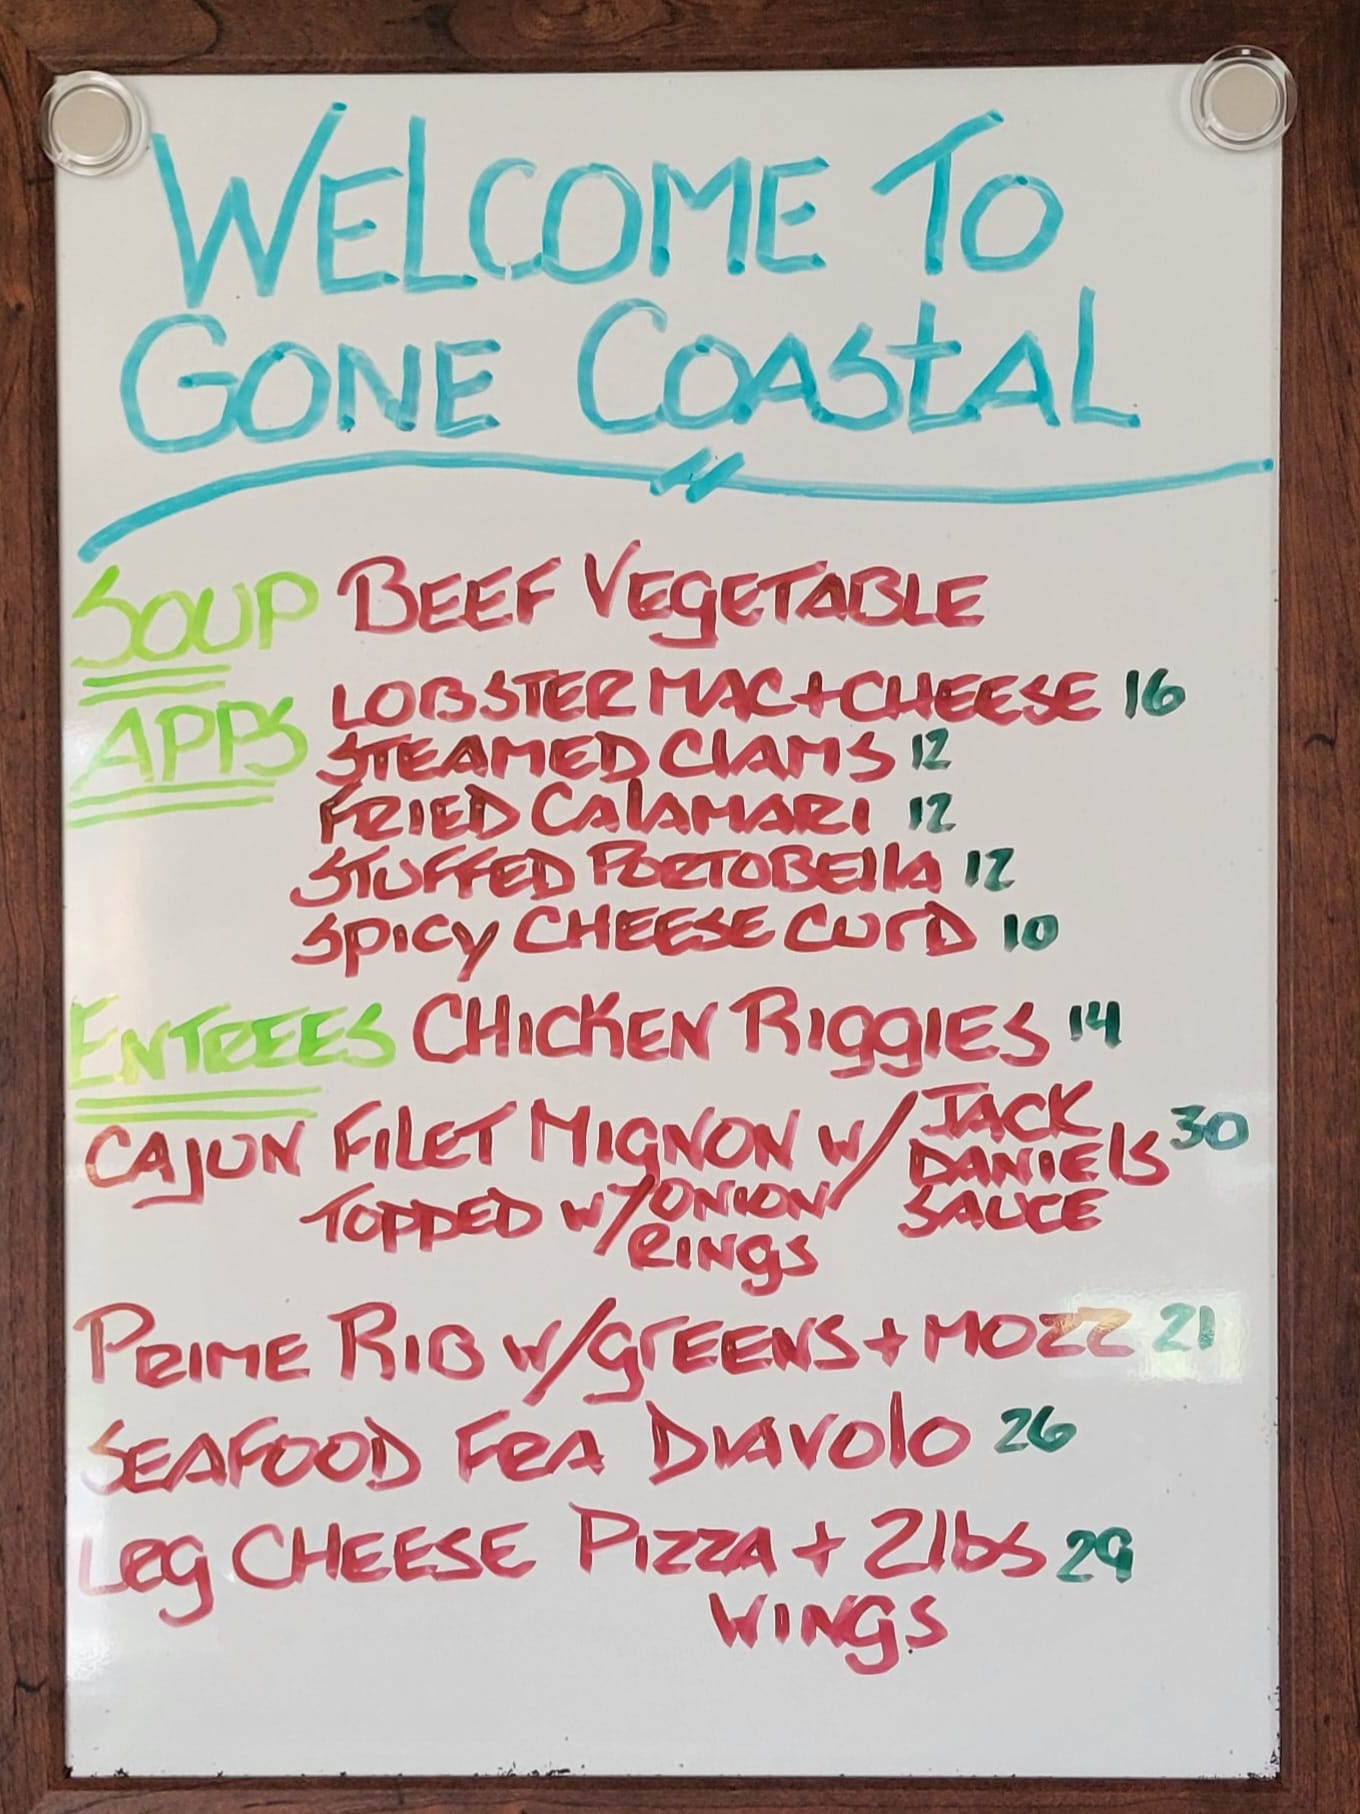 WELCOME TO
GONE COASTAL
SOUP BEEF VEGETABLE
APPS LOBSTER MAC + CHEESE 16
STEAMED CLAMS 12
FRIED CALAMARI 12
STUFFED PORTOBELLA 12
SPICY CHEESE CURD 10
ENTREES CHICKEN RIGGIES 14
CAJUN FILET MIGNON W/ JACK DANIELS SAUCE 30
TOPPED W/ ONION RINGS
PRIME RIB W/ GREENS + MOZZ 21
SEAFOOD FRA DIAVOLO 26
LRG CHEESE PIZZA + 2lbs 29
WINGS